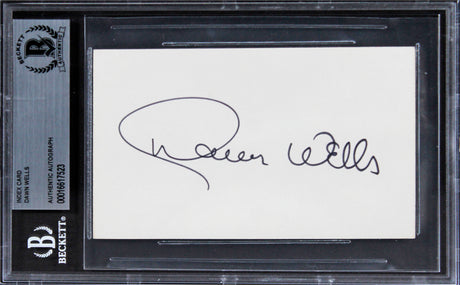 BECKETT
AUTHENTIC
INDEX CARD
DAWN WELLS
AUTHENTIC AUTOGRAPH
00016617523
BECKETT
Dawn Wells